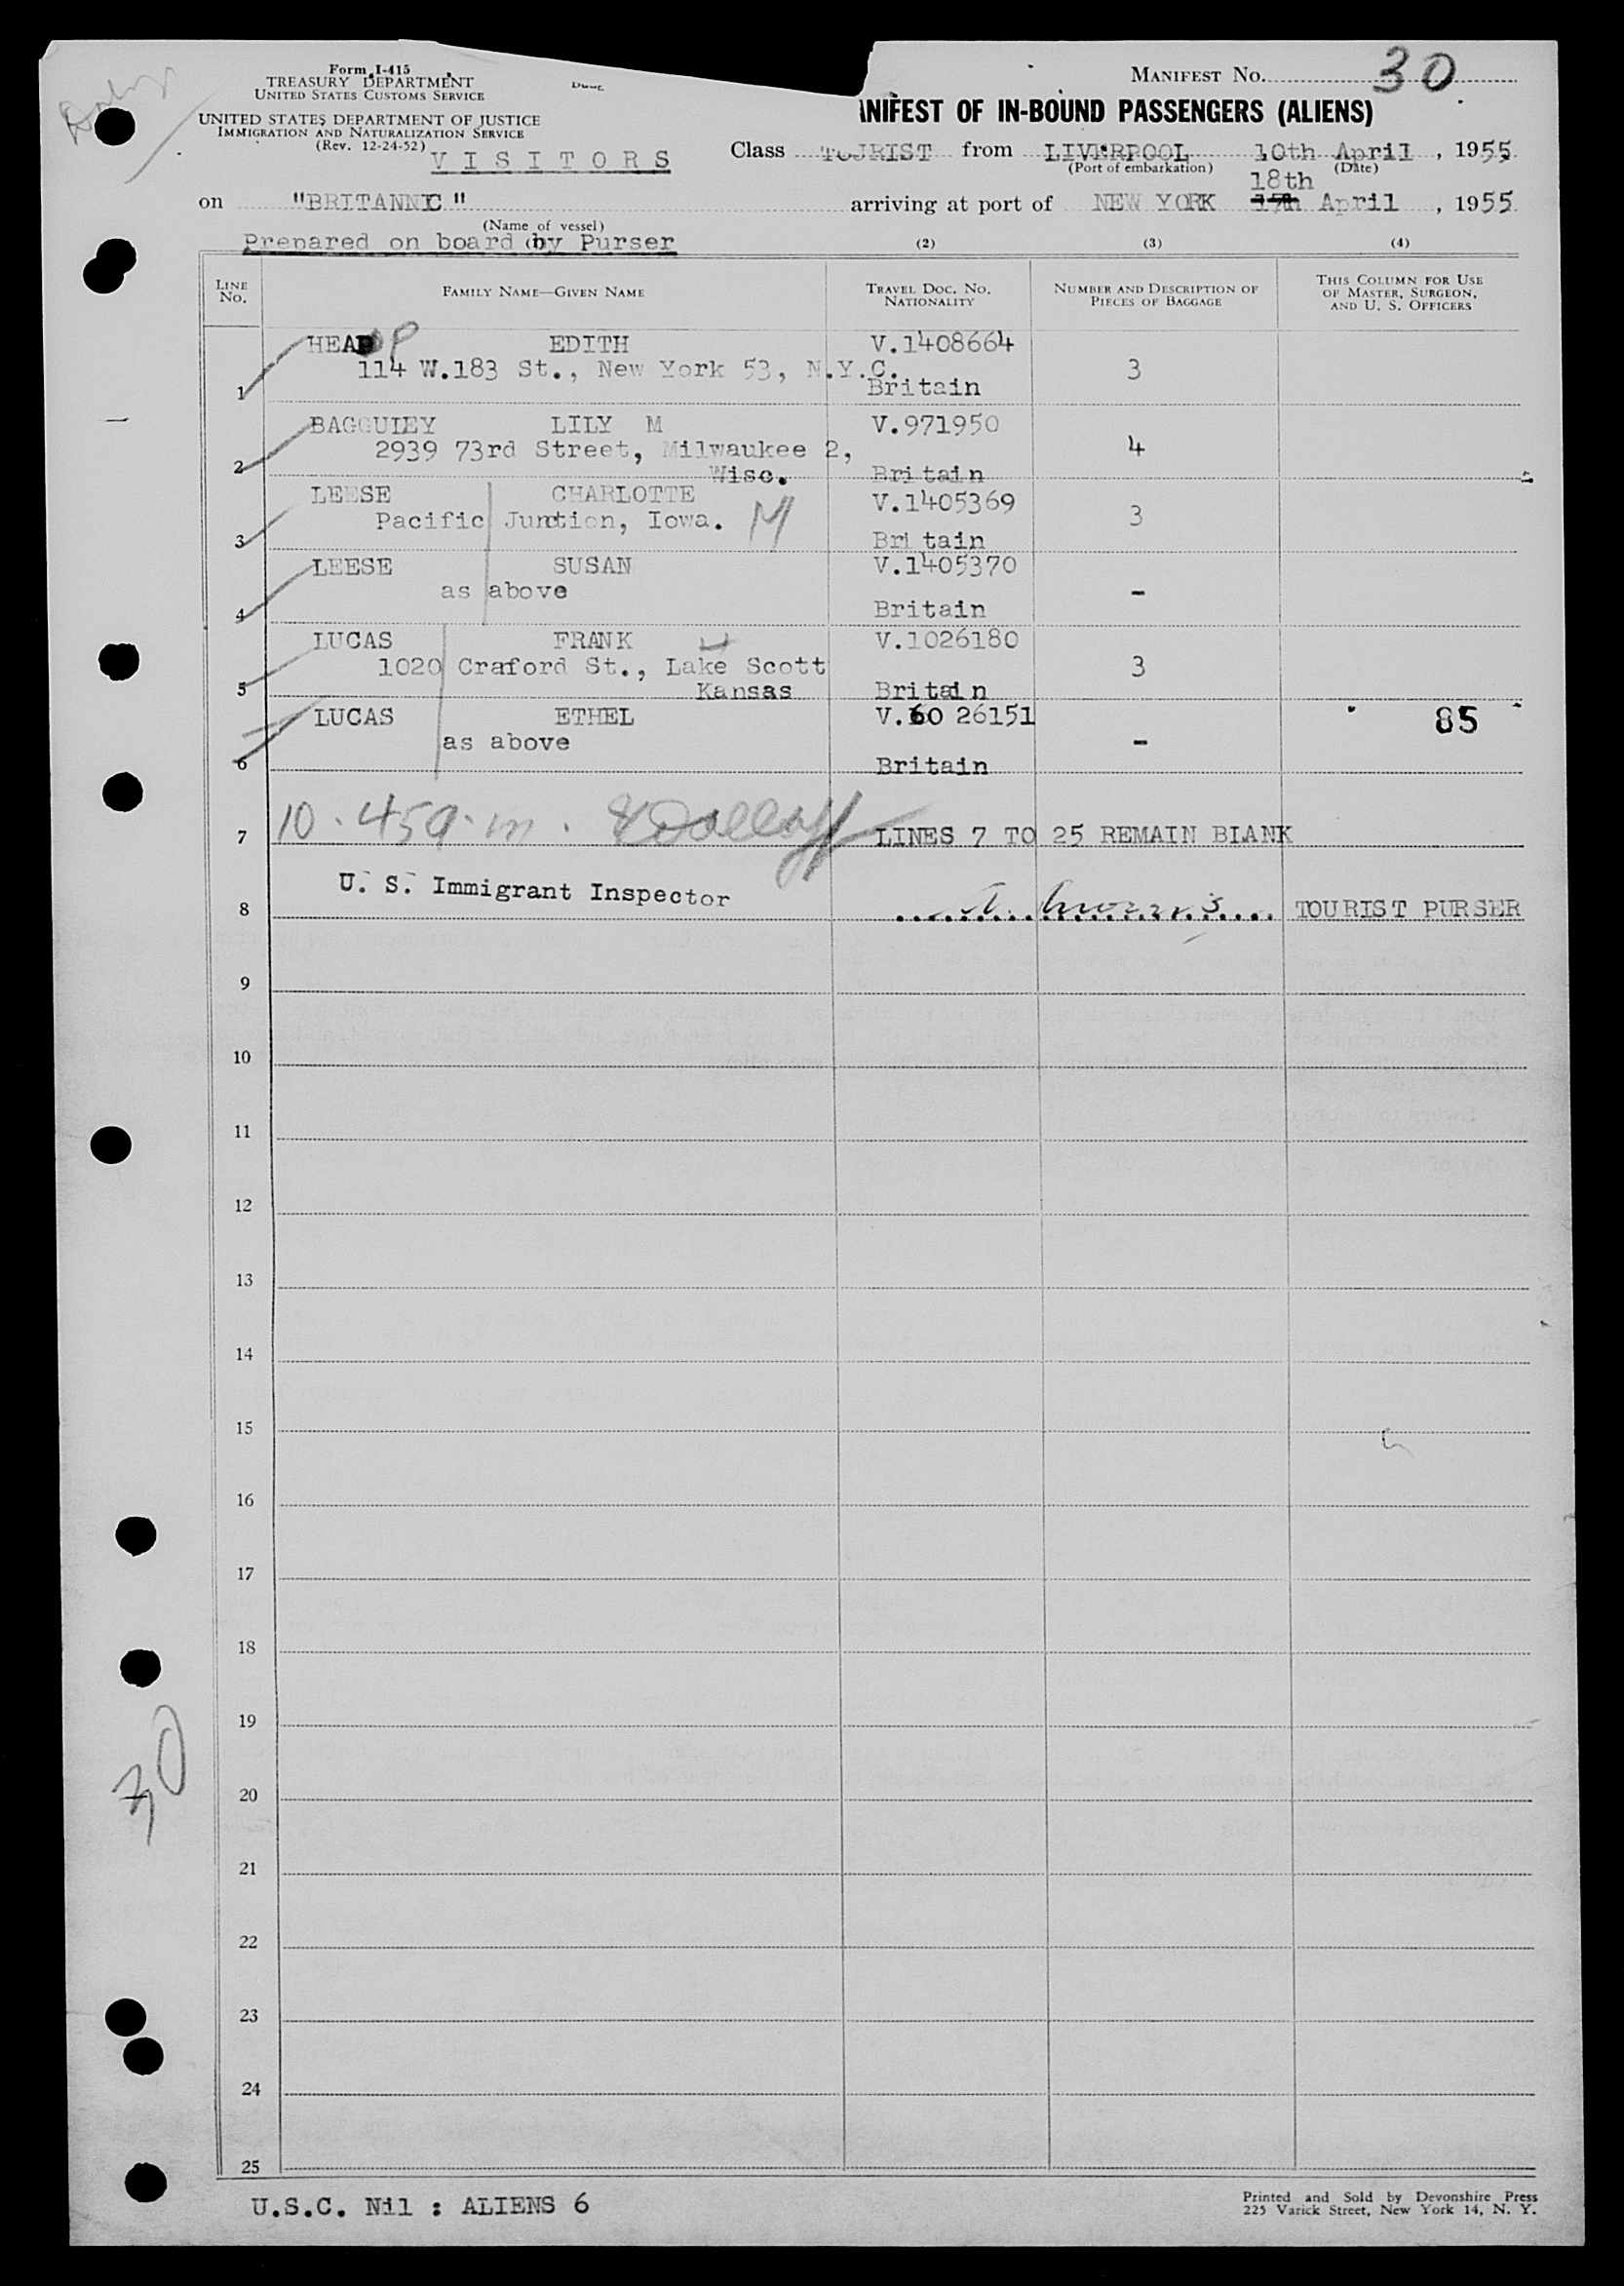 Form I-415
TREASURY DEPARTMENT
UNITED STATES CUSTOMS SERVICE
UNITED STATES DEPARTMENT OF JUSTICE
IMMIGRATION AND NATURALIZATION SERVICE
(Rev. 12-24-52)
VISITORS
MANIFEST No. 30
NIFEST OF IN-BOUND PASSENGERS (ALIENS)
Class TOURIST from LIVERPOOL 10th April, 1955
(Port of embarkation) (Date)
18th
on "BRITANNIC" arriving at port of NEW YORK 17th April, 1955
(Name of vessel)
Prepared on board by Purser (2) (3) (4)
LINE No. FAMILY NAME—GIVEN NAME TRAVEL DOC. NO. NATIONALITY NUMBER AND DESCRIPTION OF PIECES OF BAGGAGE THIS COLUMN FOR USE OF MASTER, SURGEON, AND U. S. OFFICERS
HEAP P EDITH V.1408664
114 W.183 St., New York 53, N.Y.C. 3
1 Britain
BAGGULEY LILY M V.971950
2939 73rd Street, Milwaukee 2, 4
2 Wisc. Britain
LEESE CHARLOTTE V.1405369
Pacific Junction, Iowa. M 3
3 Britain
LEESE SUSAN V.1405370
as above -
4 Britain
LUCAS FRANK V.1026180
1020 Craford St., Lake Scott 3
5 Kansas Britain
LUCAS ETHEL V.60 26151 85
as above -
6 Britain
10.45 a.m.
7 LINES 7 TO 25 REMAIN BLANK
U. S. Immigrant Inspector
8 TOURIST PURSER
9
10
11
12
13
14
15
16
17
18
19
30
20
21
22
23
24
25
U.S.C. Nil : ALIENS 6
Printed and Sold by Devonshire Press
225 Varick Street, New York 14, N. Y.